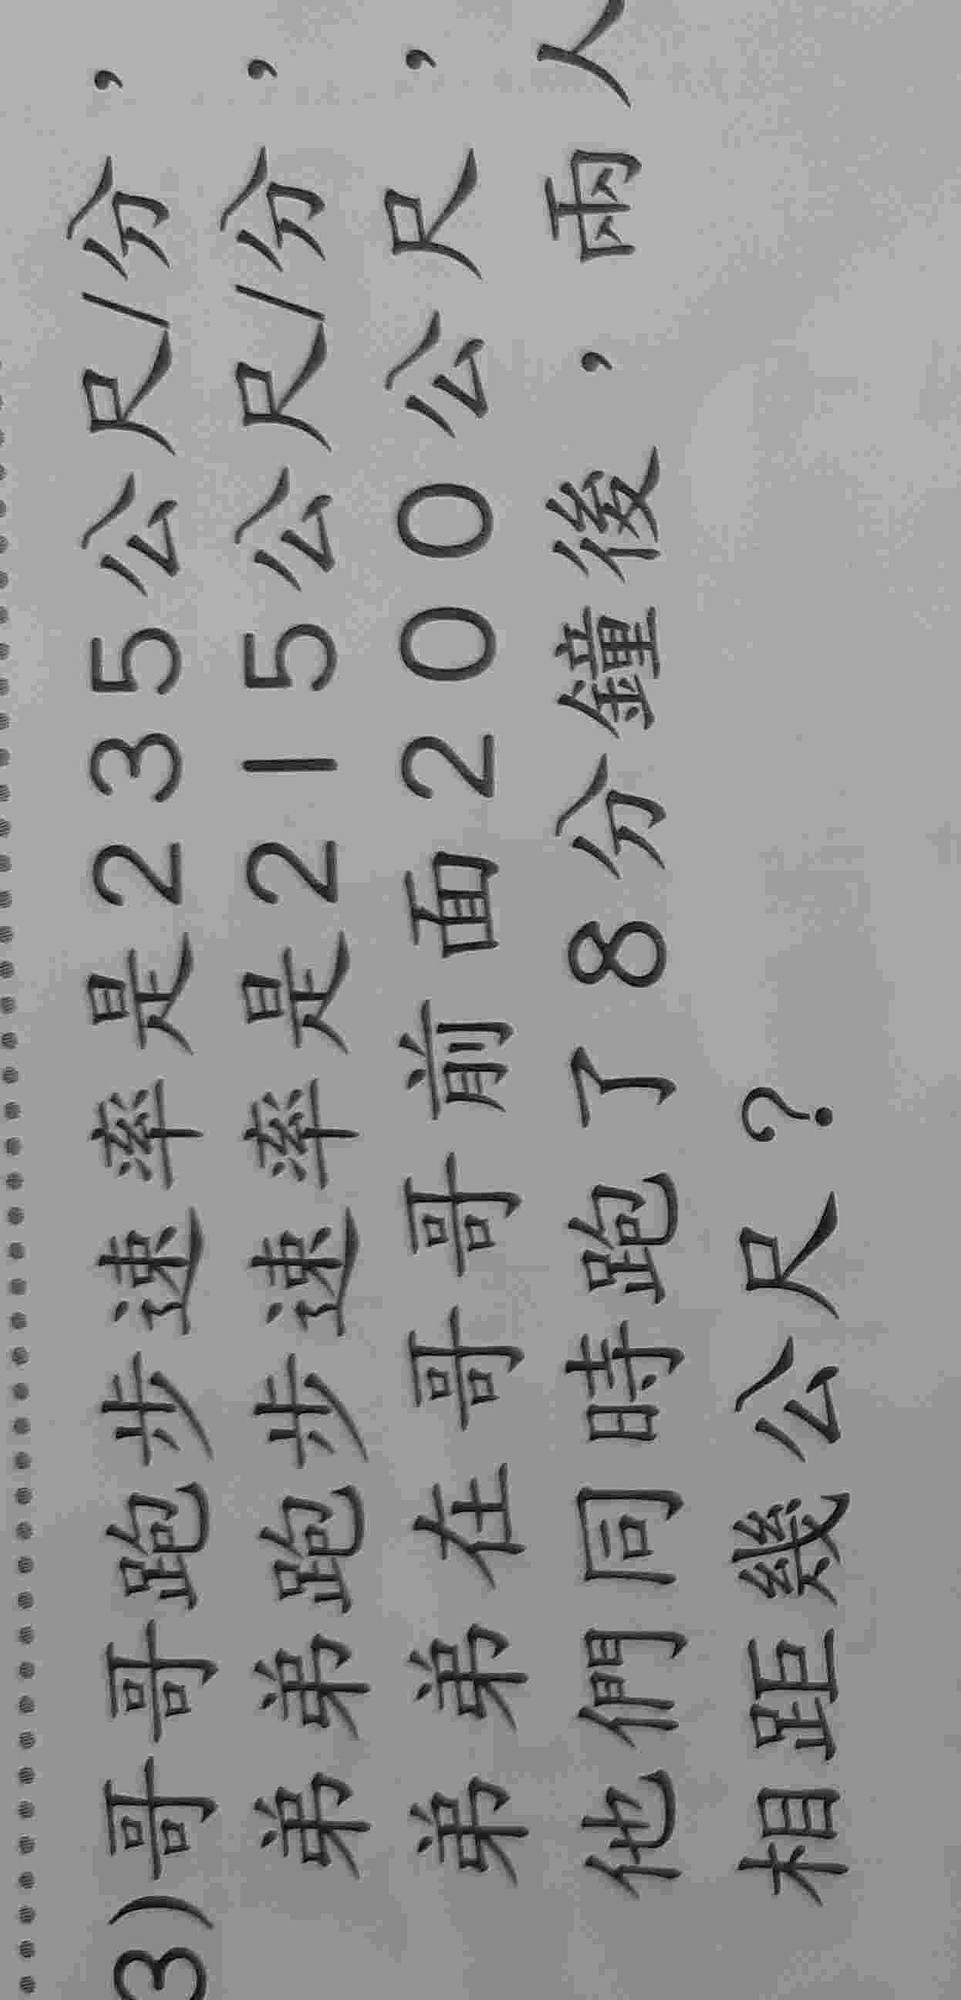 3)哥哥跑步速率是235公尺/分，
弟弟跑步速率是215公尺/分，
弟弟在哥哥前面200公尺，
他們同時跑了8分鐘後，兩人
相距幾公尺？